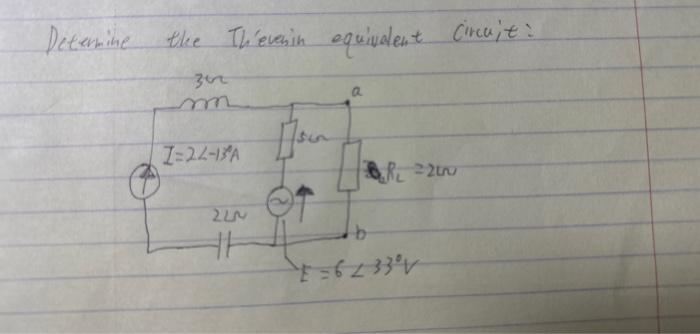 Determine the Thévenin equivalent circuit:
3Ω
a
5Ω
I=2∠-13°A
R_L = 2Ω
2Ω
b
E = 6∠33°V